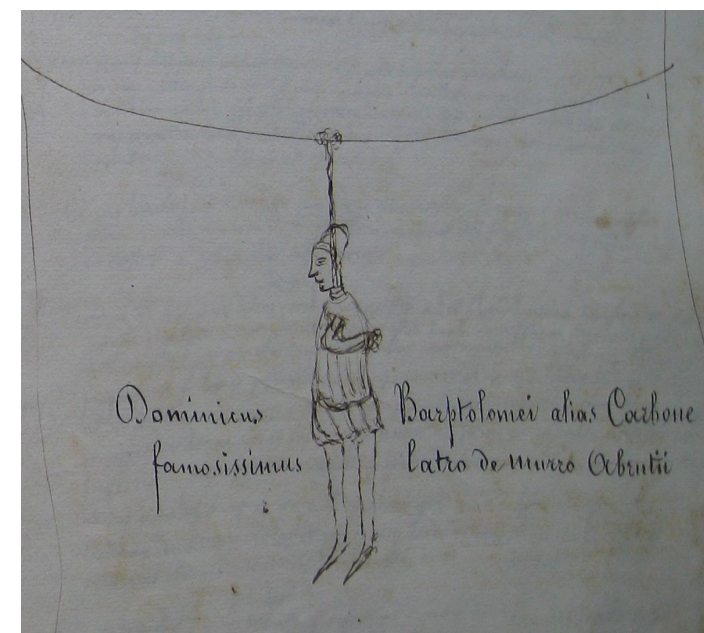 Dominicus Barptolomei alias Carbone
famosissimus latro de Murro Abrutii